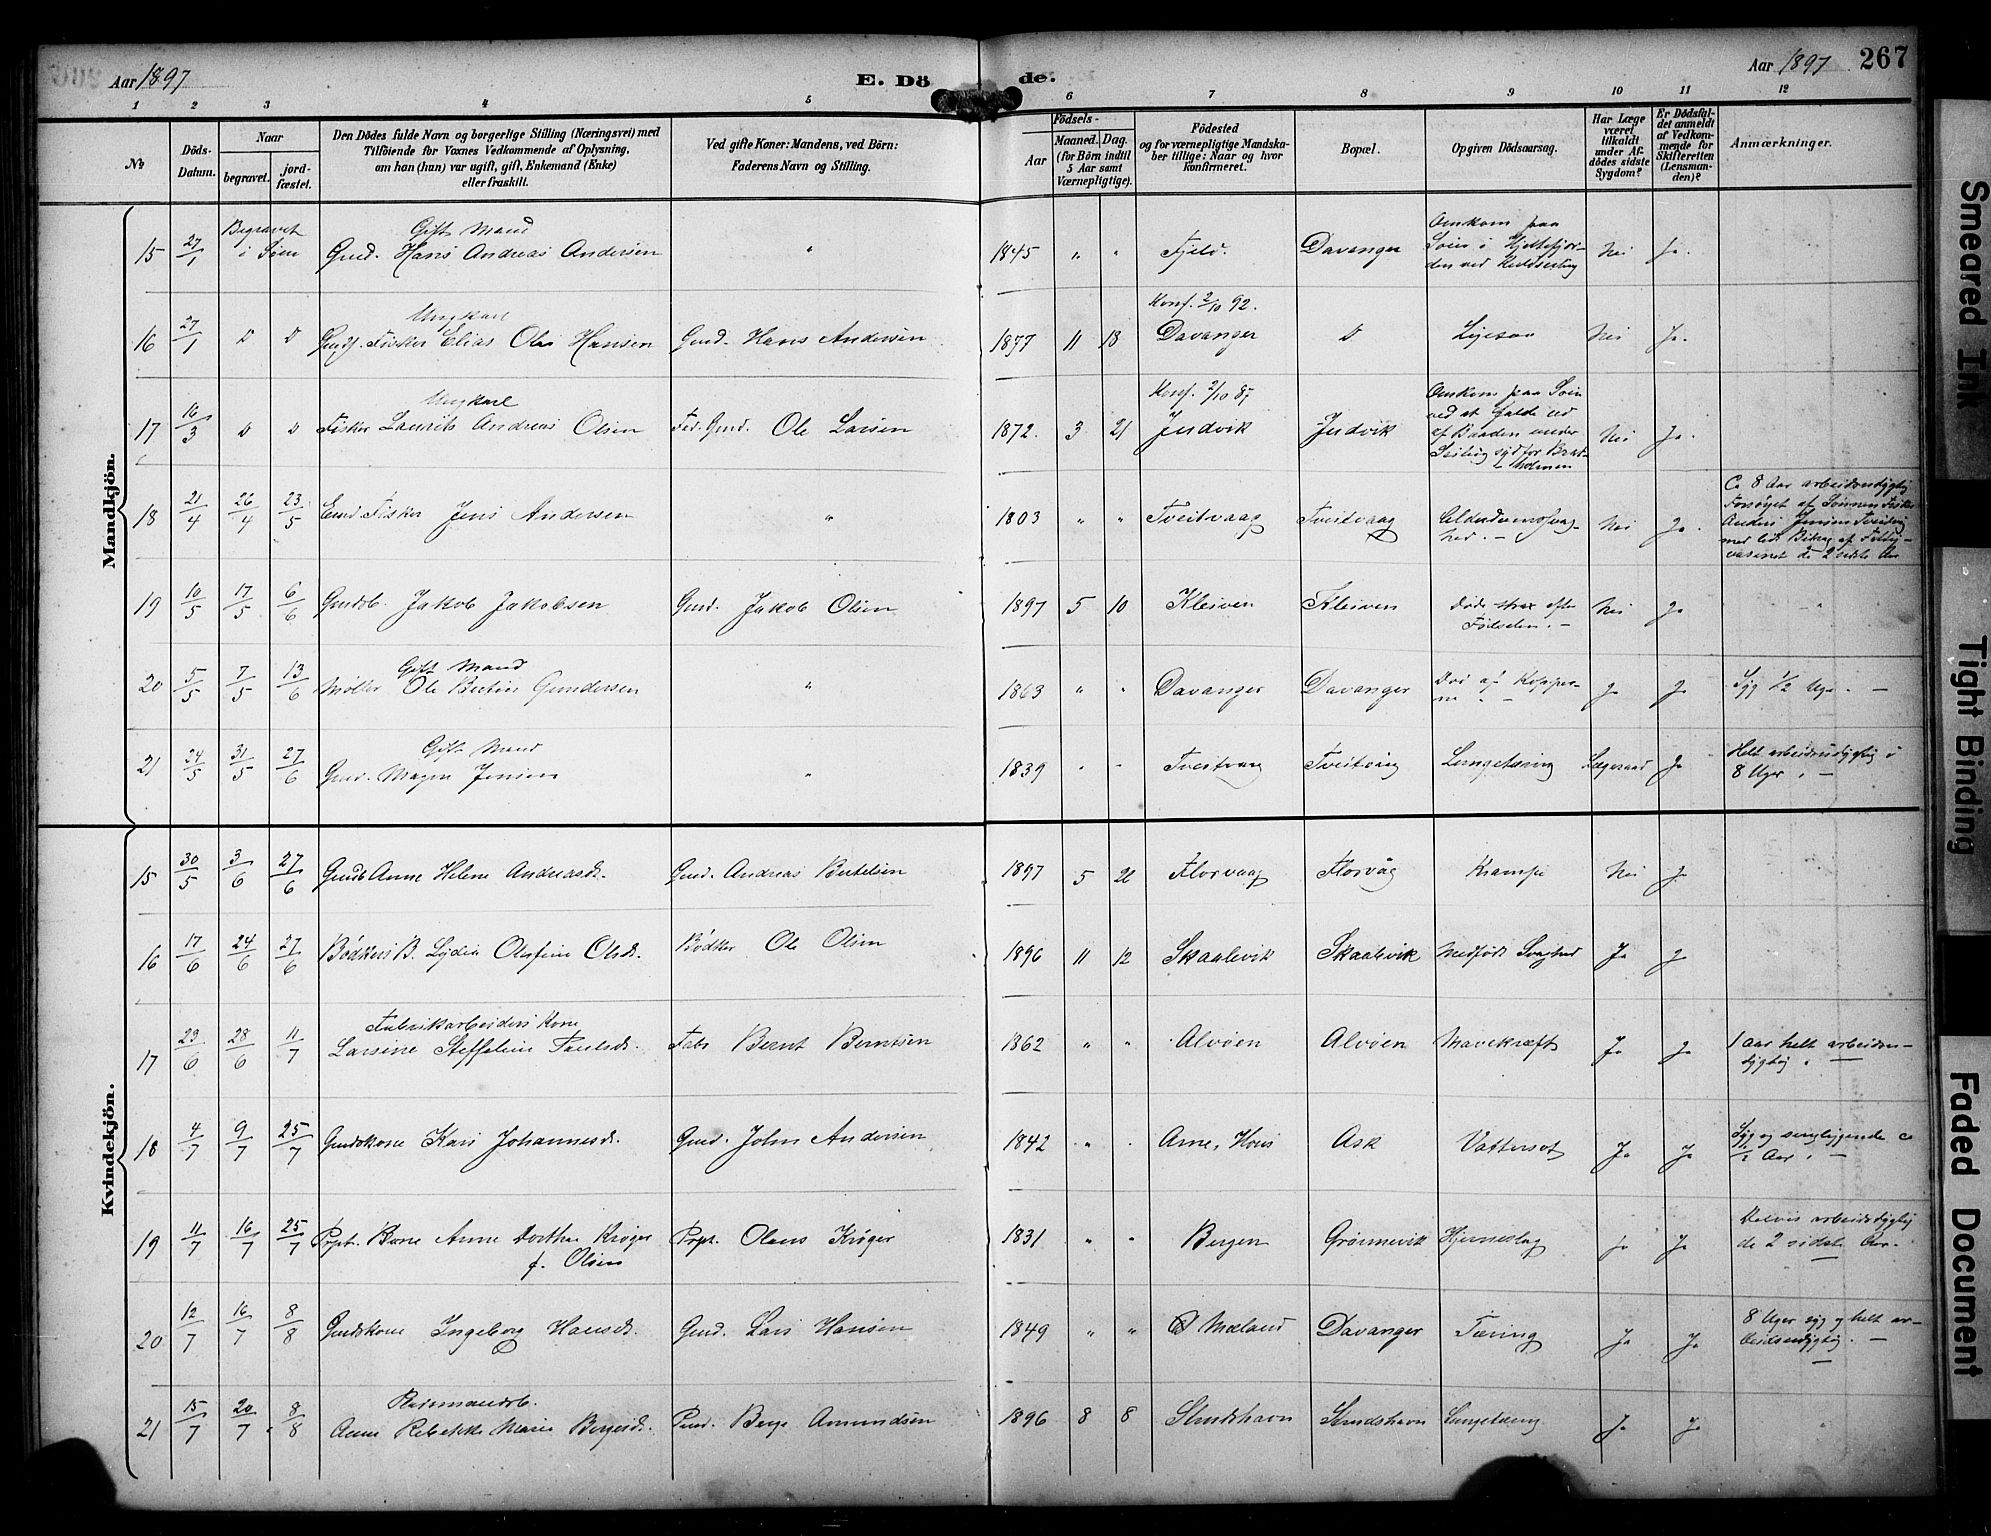 Aar 1897
E. Döde.
Aar 1897 267
1 2 3 4 5 6 7 8 9 10 11 12
No
Döds-Datum.
Naar
begravet.
jordfæstet.
Den Dödes fulde Navn og borgerlige Stilling (Næringsvei) med
Tilföiende for Voxnes Vedkommende af Oplysning,
om han (hun) var ugift, gift, Enkemand (Enke)
eller fraskilt.
Ved gifte Koner: Mandens, ved Börn:
Faderens Navn og Stilling.
Födsels-
Aar
Maaned. Dag.
(for Börn indtil
5 Aar samt
Værnepligtige).
Födested
og for værnepligtige Mandskaber tillige: Naar og hvor
konfirmeret.
Bopæl.
Opgiven Dödsaarsag.
Har Læge
været
tilkaldt
under Afdödes sidste
Sygdom?
Er Dödsfaldet anmeldt
af Vedkommende for
Skifteretten
(Lensmanden)?
Anmærkninger.
Mandkjön.
15 27/1 Begravet i Søen Gift Mand
Gmd. Hans Andreas Andersen " 1845 " " Fjeld. Davanger Omkom paa
Søen i Hjeltefjorden ved Nei Ja.
16 27/1 D D Ungkarl
Fisker Elias Olai Hansen Gmd. Hans Andersen 1877 11 18 Konf. 2/10 92.
Davanger D Ligesaa Nei Ja.
17 16/3 D D Ungkarl
Fisker Laurits Andreas Olsen Gmd. Ole Larsen 1872. 3 21 Konf. 2/10 87
Indvik Indvik Omkom paa Søen
ved at falde ud
af Baaden under
Seiling syd for Nei Ja.
18 21/4 26/4 23/5 Fisker Jens Andersen " 1803 " " Tveitvaag Tveitvaag Alderdomssvaghed. Nei Ja. Ca 8 Aar arbeidsudygtig
Forsørget af Sønnen Fisker
Anders Jensen Tveitvaag
med lidt Bidrag af
de 2 sidste Aar
19 10/5 17/5 6/6 Gmdsb. Jakob Jakobsen Gmd. Jakob Olsen 1897 5 10 Kleiven Kleiven Døde strax efter
Fødselen. Nei Ja "
20 5/5 7/5 13/6 Gift Mand
Møller Ole Bertin Gundersen " 1863 " " Davanger Davanger Død af Kopperne Ja Ja Syg 1/2 Uge.
21 24/5 31/5 27/6 Gift Mand
Gmd. Mogns Jensen " 1839 " " Tveitvaag Tveitvaag Lungetæring Lægeraad Ja Helt arbeidsudygtig i
8 Uger.
Kvindekjön.
15 30/5 3/6 27/6 Gmdb Anne Helene Andreasd. Gmd. Andreas Bertelsen 1897 5 22 Florvaag Florvåg Krampe Nei Ja
16 17/6 24/6 27/6 Bødkers B. Lydia Olsd. Bødker Ole Olsen 1896 11 12 Skaalevik Skaalevik Medfødt Svaghed Ja Ja
17 23/6 28/6 11/7 Fabrikarbeiders Kone
Larsine Steffeline Paulsd. Fabr Bernt Berntsen 1862 " " Alvøen Alvøen Mavekræft Ja Ja 1 Aar helt arbeidsudygtig.
18 4/7 9/7 25/7 Gmdskone Kari Johannesd. Gmd. John Andersen 1842 " " Arne, Hous Ask Vattersot Ja Ja Syg og sengliggende ca
1/2 Aar.
19 11/7 16/7 25/7 Prpt. Kone Anne Dorthea Krøger
f. Olsen Prpt. Olaus Krøger 1831 " " Bergen Grønnevik Hjerneslag Ja Ja Delvis arbeidsdygtig
de 2 sidste Aar.
20 12/7 16/7 8/8 Gmdskone Ingeborg Hansd. Gmd. Lars Hansen 1849 " " Ø Mæland Davanger Tæring Ja Ja 8 Uger syg og helt arbeidsudygtig.
21 15/7 20/7 8/8
Anne Rebekke Marie Bergesd. Berge Amundsen 1896 8 8 Strudshavn Strudshavn Lungetæring Ja Ja "
Smeared Ink
Tight Binding
Faded Document